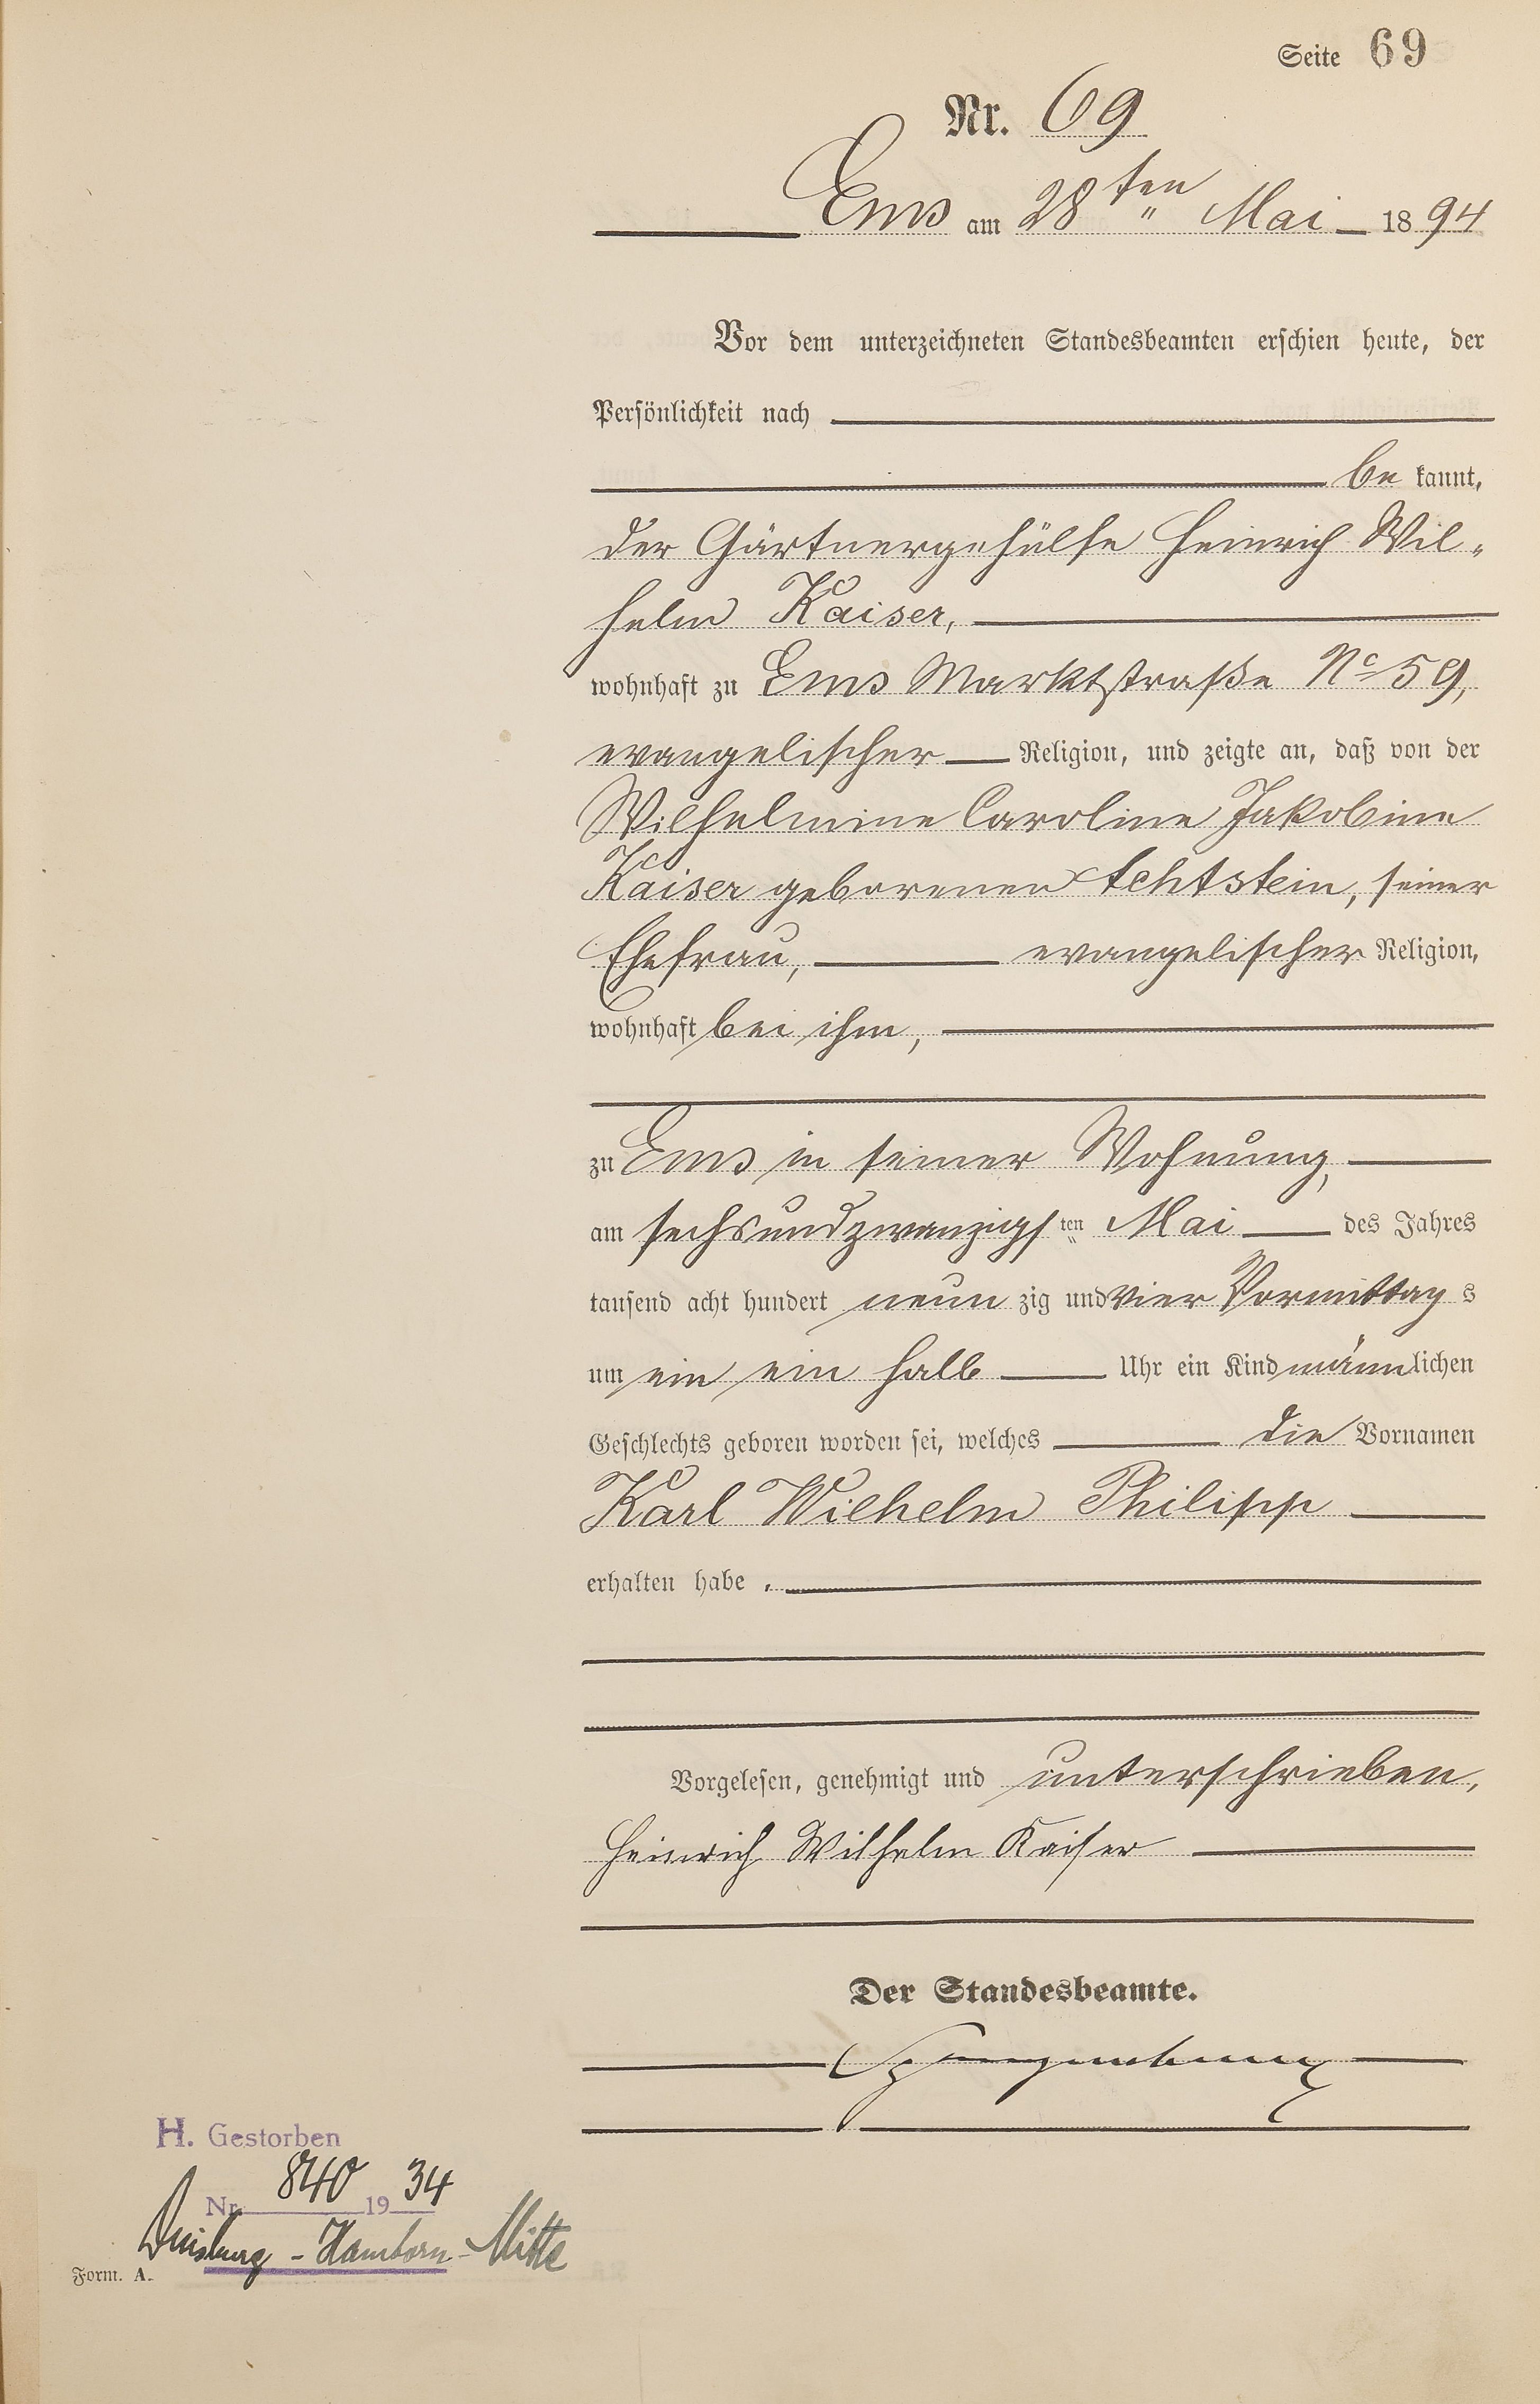 Seite 69
Nr. 69
Ems am 28ten " Mai 1894
Vor dem unterzeichneten Standesbeamten erschien heute, der
Persönlichkeit nach
be kannt,
der Gärtnergehülfe Heinrich Wil-
helm Kaiser,
wohnhaft zu Ems Marktstraße No 59,
evangelischer Religion, und zeigte an, daß von der
Wilhelmine Caroline Jakobine
Kaiser geborenen Echtstein, seiner
Ehefrau, evangelischer Religion,
wohnhaft bei ihm,
zu Ems in seiner Wohnung,
am sechsundzwanzigsten Mai des Jahres
tausend acht hundert neun zig und vier Vormittags
um ein ein halb Uhr ein Kind männlichen
Geschlechts geboren worden sei, welches die Vornamen
Karl Wilhelm Philipp
erhalten habe.
Vorgelesen, genehmigt und unterschrieben,
Heinrich Wilhelm Kaiser
Der Standesbeamte.
H. Gestorben
Nr. 840 1934
Duisburg-Hamborn-Mitte
Form. A.